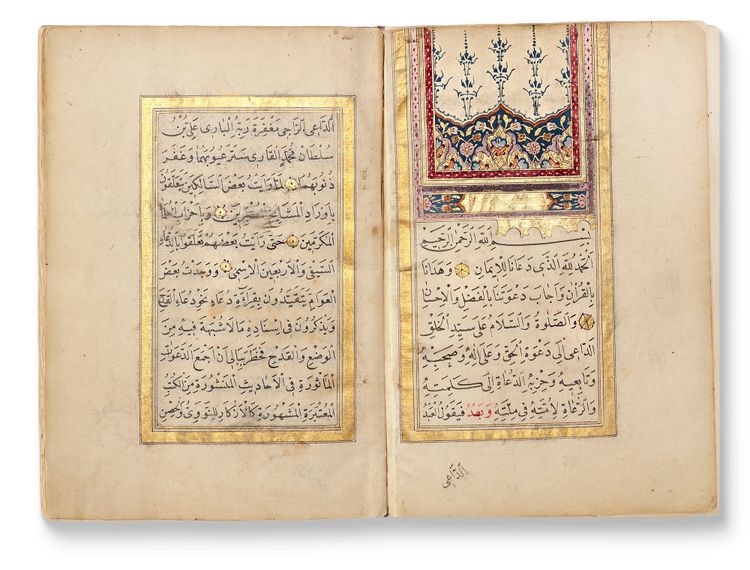 بِسْمِ اللّٰهِ الرَّحْمٰنِ الرَّحِيمِ
اَلْحَمْدُ لِلّٰهِ الَّذِي دَعَانَا لِلْاِيمَانِ وَهَدَانَا
بِالْقُرْاٰنِ وَاَجَابَ دَعْوَتَنَا بِالْفَضْلِ وَالْاِحْسَانِ
وَالصَّلٰوةُ وَالسَّلَامُ عَلٰى سَيِّدِ الْخَلْقِ
الدَّاعِي اِلٰى دَعْوَةِ الْحَقِّ وَعَلٰى اٰلِهِ وَصَحْبِهِ
وَتَابِعِيهِ وَحِزْبِهِ الدُّعَاةِ اِلٰى كَلِمَتِهِ
وَالرُّعَاةِ لِاُمَّتِهِ فِي مِلَّتِهِ وَبَعْدُ فَيَقُولُ الْعَبْدُ
الدَّاعِي
الدَّاعِي الرَّاجِي مَغْفِرَةَ رَبِّهِ الْبَارِي عَلِيُّ بْنُ
سُلْطَانْ مُحَمَّدٍ الْقَارِي سَتَرَ عُيُوبَهُمَا وَغَفَرَ
ذُنُوبَهُمَا لَمَّا رَاَيْتُ بَعْضَ السَّالِكِينَ يَتَعَلَّقُونَ
بِاَوْرَادِ الْمَشَايِخِ وَبِاَحْزَابِ
الْمُكَرَّمِينَ حَتّٰى رَاَيْتُ بَعْضَهُمْ تَعَلَّقُوا بِالدُّعَاءِ
السَّيْفِي وَالْاَرْبَعِينَ الْاِسْمِي وَوَجَدْتُ بَعْضَ
الْعَوَامِّ يَتَقَيَّدُونَ بِقِرَاءَةِ دُعَاءِ نَحْوِ دُعَاءِ الْقَدَحِ
وَيَذْكُرُونَ فِي اِسْنَادِهِ مَا لَا شُبْهَةَ فِيهِ مِنَ
الْوَضْعِ وَالْقَدْحِ فَخَطَرَ بِبَالِي اَنْ اَجْمَعَ الدَّعَوَاتِ
الْمَأْثُورَةَ فِي الْاَحَادِيثِ الْمَنْثُورَةِ مِنَ الْكُتُبِ
الْمُعْتَبَرَةِ الْمَشْهُورَةِ كَالْاَذْكَارِ لِلنَّوَوِي وَالْحِصْنِ